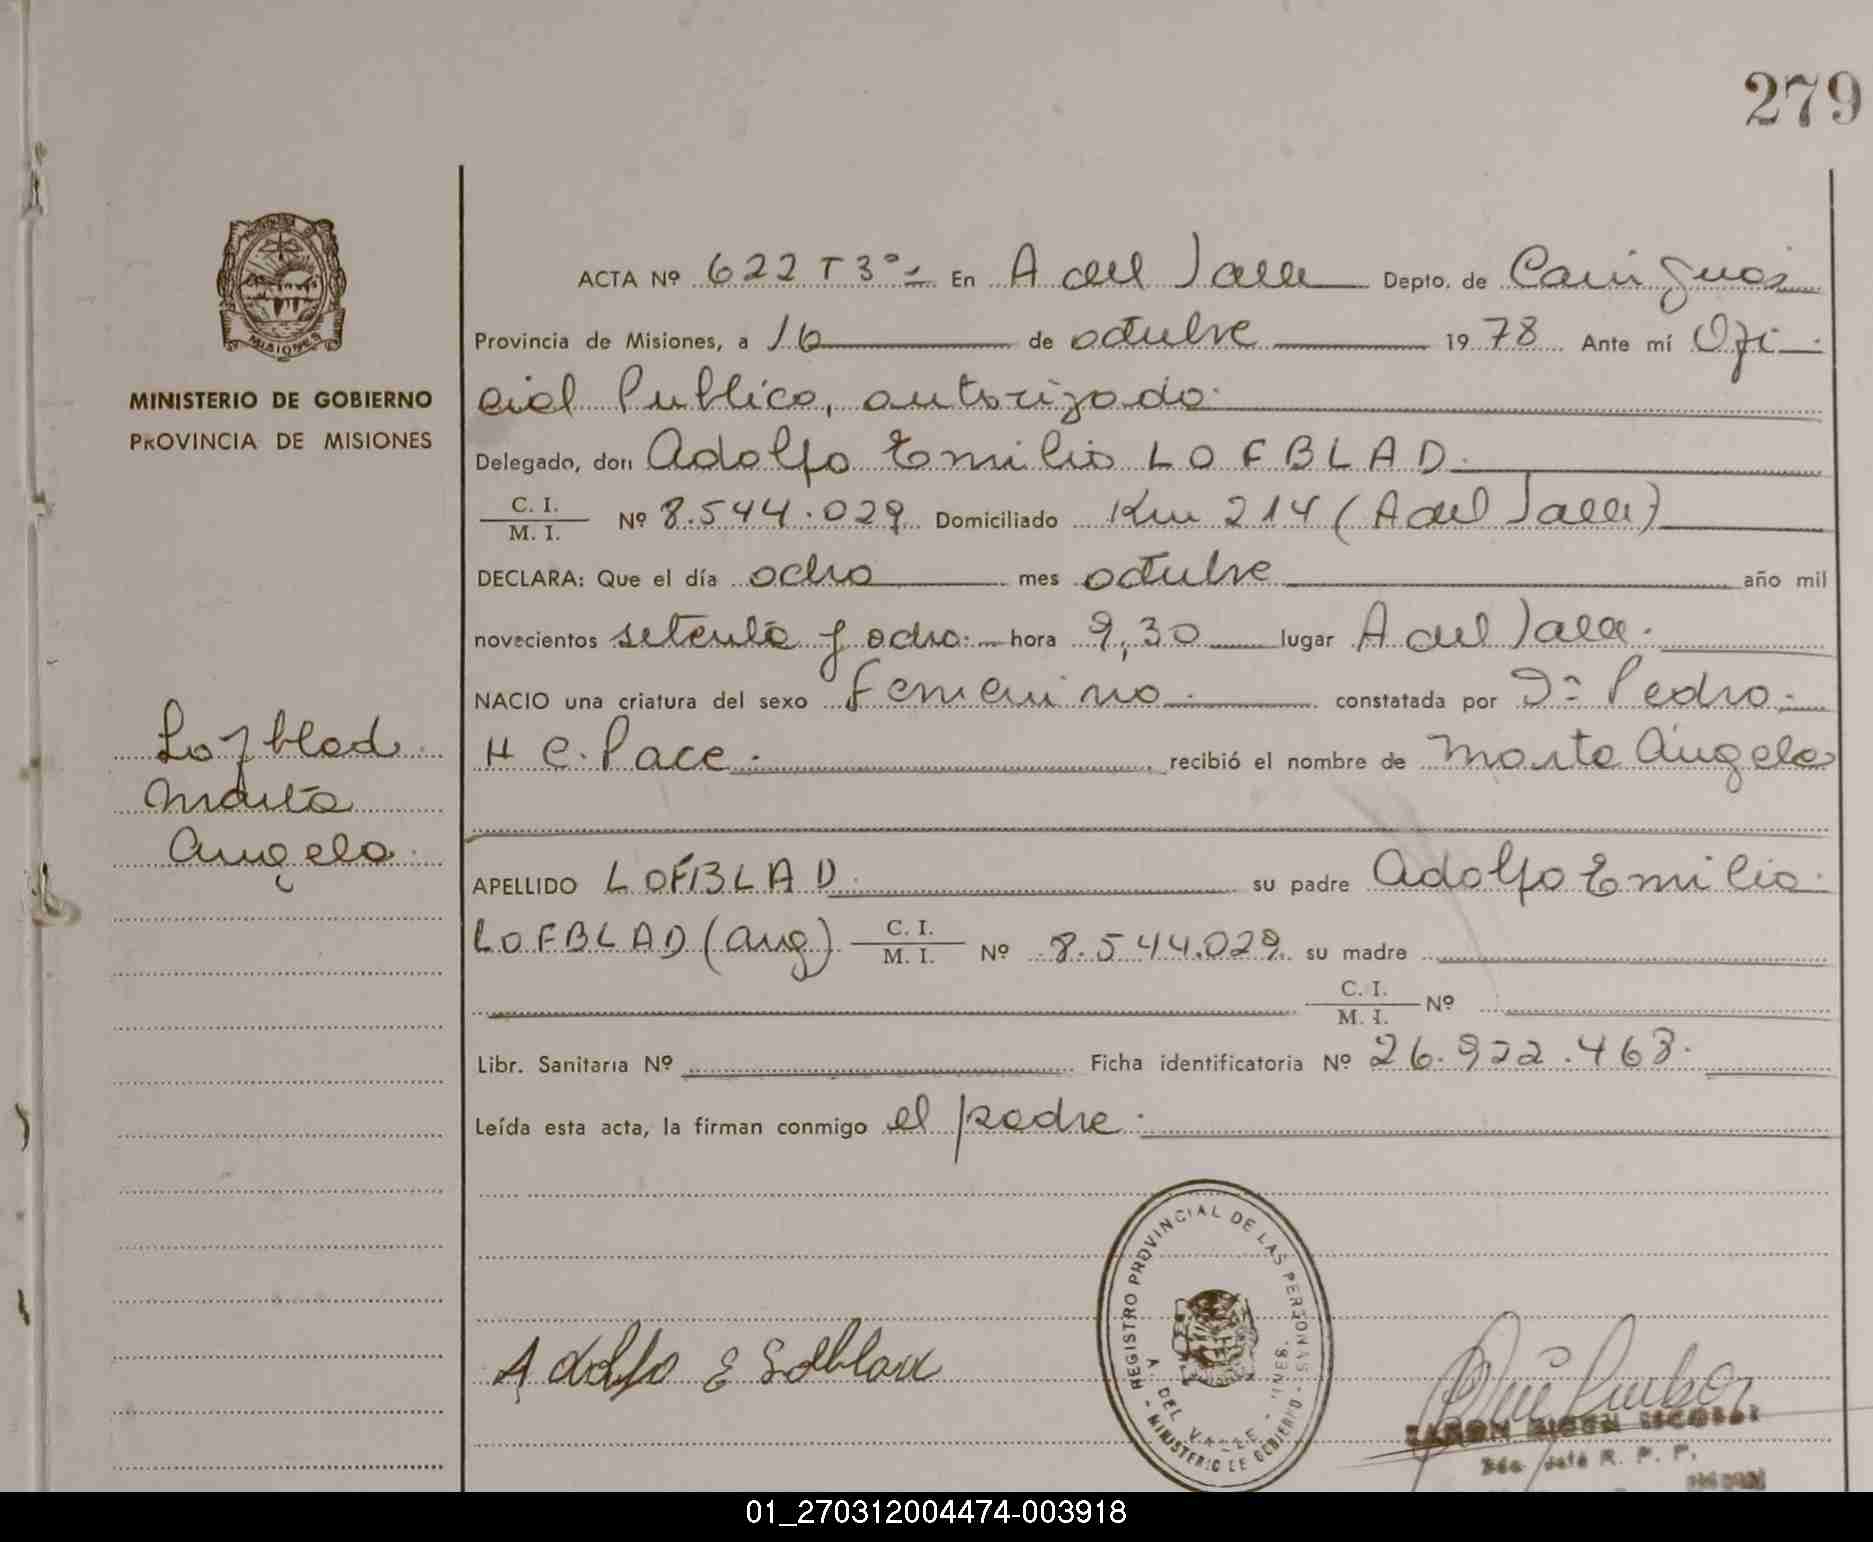 279
MISIONES
MINISTERIO DE GOBIERNO
PROVINCIA DE MISIONES
Lofblad
Marta
Angela.
ACTA Nº 622 T 3º= En A del Valle Depto. de Cainguas
Provincia de Misiones, a 16 de octubre 1978 Ante mí Ofi-
cial Publico, autorizado.
Delegado, don Adolfo Emilio LOFBLAD.
C. I.
M. I. Nº 8.544.029 Domiciliado Km 214 (A del Valle)
DECLARA: Que el día ocho mes octubre año mil
novecientos setenta y ocho.- hora 9,30 lugar A del Valle.
NACIO una criatura del sexo femenino. constatada por Dº Pedro.
H C. Pace. recibió el nombre de Marta Angela
APELLIDO LOFBLAD. su padre Adolfo Emilio.
LOFBLAD (arg) C. I.
M. I. Nº 8.544.029 su madre
C. I.
M. I. Nº
Libr. Sanitaria Nº Ficha identificatoria Nº 26.922.463.
Leída esta acta, la firman conmigo el padre.
REGISTRO PROVINCIAL DE LAS PERSONAS
- MINISTERIO DE GOBIERNO -
A. DEL VALLE
Adolfo E Lofblad
ESCOBAR
R. P. P.
01_270312004474-003918